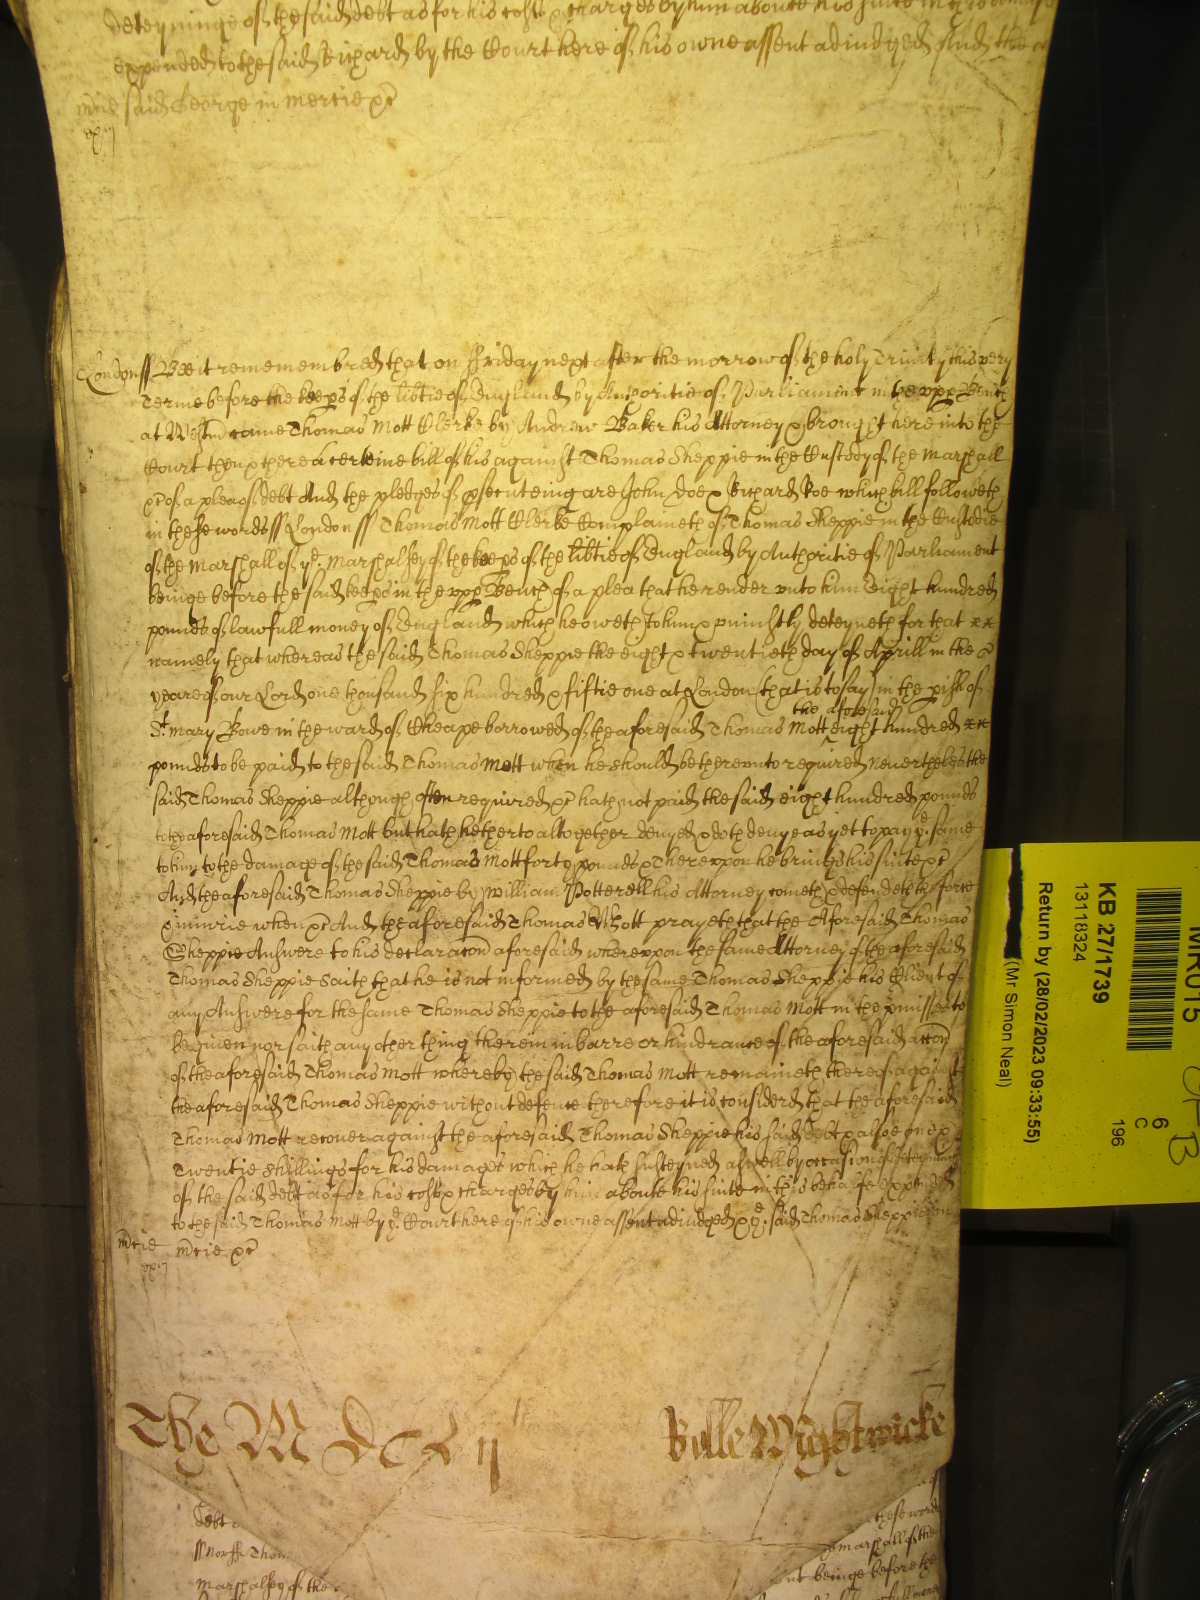 deteyninge of the said debt as for his costs & charges by him aboute his suite in this
expended to the said Richard by the Court here of his owne assent adiudged And the
mcie said George in mercie &c
London ss Bee it rememembred that on Friday next after the morrow of the holy Trinity this very
Terme before the keeps of the libtie of England by Authoritie of Parliament in the vpp Bench
at Westm came Thomas Mott Clerke by Andrew Baker his Attorney & brought here into the
Court then & there a certeine bill of his against Thomas Sheppie in the Custody of the Marshall
&c of a plea of debt And the pledges of psecuteing are John Doe & Richard Roe which bill followeth
in these words ss London ss Thomas Mott Clerke Complaineth of Thomas Sheppie in the Custodie
of the Marshall of ye Marshalsey of the keeps of the libtie of England by Authoritie of Parliament
beinge before the said keeps in the vpp Bench of a plea that he render vnto him Eight hundred
pounds of lawfull money of England which he oweth to him & vniustly deteyneth for that
namely that whereas the said Thomas Sheppie the eight & twentieth day of Aprill in the
yeare of our Lord one thousand six hundred & fiftie one at London (that is to say) in the pish of
the aforesaid
St Mary Bowe in the ward of Cheape borrowed of the aforesaid Thomas Mott eight hundred
pounds to be paid to the said Thomas Mott when he should be therevnto required Neverthelesse the
said Thomas Sheppie although often required &c hath not paid the said eight hundred pounds
to the aforesaid Thomas Mott but hath hetherto altogether denyed & doth denye as yet to pay ye same
to him to the damage of the said Thomas Mott forty pounds & Therevpon he brings his suite &c
And the aforesaid Thomas Sheppie by William Potterell his Attorney cometh & defendeth the force
& iniurie when &c And the aforesaid Thomas Mott prayeth that the Aforesaid Thomas
Sheppie Answere to his declaracon aforesaid wherevpon the same Attorney of the aforesaid
Thomas Sheppie Saith that he is not informed by the same Thomas Sheppie his Client of
any Answere for the same Thomas Sheppie to the aforesaid Thomas Mott in the pmisses to
be given nor saith any other thing therein in barre or hindrance of the aforesaid accon
of the aforesaid Thomas Mott whereby the said Thomas Mott remaineth thereof against
the aforesaid Thomas Sheppie without defence therefore it is considerd that the aforesaid
Thomas Mott recover against the aforesaid Thomas Sheppie his said debt & alsoe
Twentie shillings for his damages which he hath susteyned aswell by occasion of deteyninge
of the said debt as for his costs & charges by him aboute his suite in this behalfe expended
to the said Thomas Mott by ye Court here of his owne assent adiudged & ye said Thomas Sheppie in
mcie mcie &c
Rolle Wightwicke
debt
these words
ss Norff Thom
marshall of the
Marshalsey of the
beinge before the
MR015
6
C
196
KB 27/1739
13118324
Return by (28/02/2023 09:33:55)
(Mr Simon Neal)